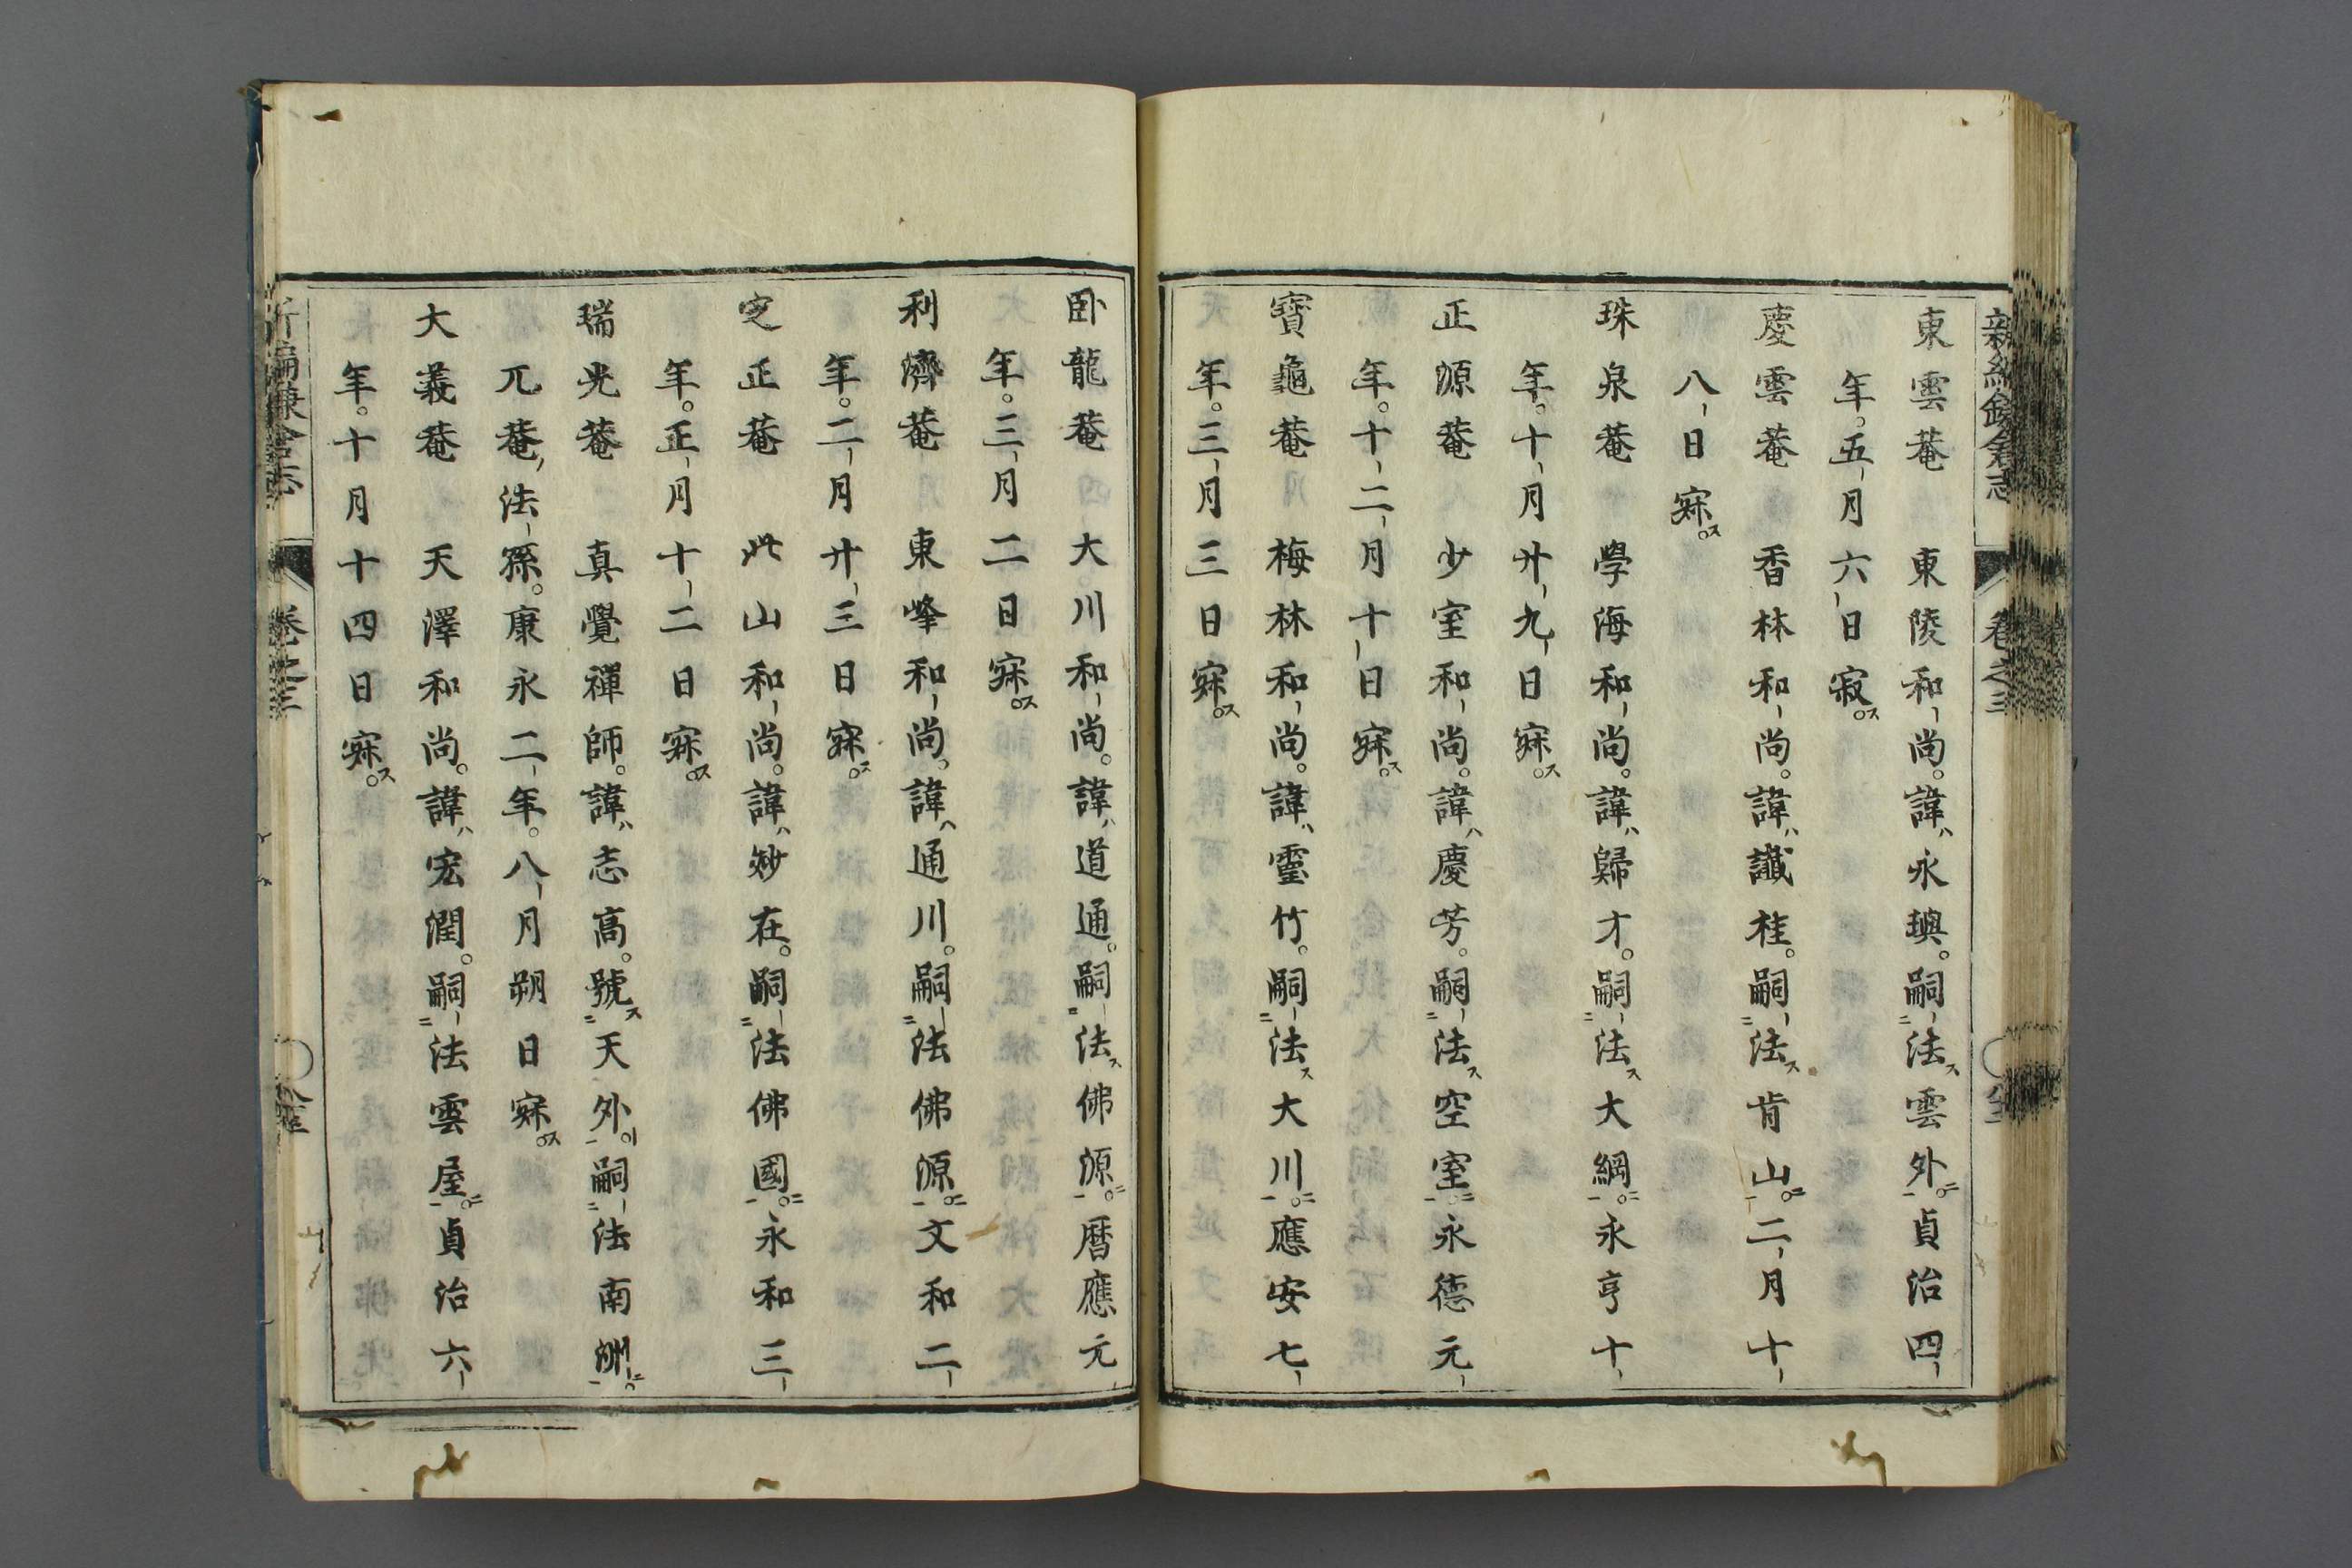 新編鎌倉志 卷之三
東雲菴 東陵和尚。諱ハ永璵。嗳法ス雲外ニ。貞治四
年。五月六日寂ス。
慶雲菴 香林和尚。諱ハ讖桂。嗣法ス肯山ニ。二月十
八日寂ス。
珠泉菴 學海和尚。諱ハ歸才。嗣法ス大綱ニ。永亨十
年。十月廿九日寂ス。
正源菴 少室和尚。諱ハ慶芳。嗣法ス空室ニ。永德元
年。十二月十日寂ス。
寶龜菴 梅林和尚。諱ハ靈竹。嗣法ス大川ニ。應安七
年。三月三日寂ス。
卧龍菴 大川和尚。諱ハ道通。嗣法ス佛源ニ。曆應元
年。三月二日寂ス。
利濟菴 東峰和尚。諱ハ通川。嗣法佛源ニ。文和二
年。二月廿三日寂ス。
定正菴 此山和尚。諱ハ妙在。嗣法佛國ニ。永和三
年。正月十二日寂ス。
瑞光菴 真覺禪師。諱ハ志高。號ス天外ト。嗣法南洲ニ。
兀菴ノ法孫。康永二年。八月朔日寂ス。
大義菴 天澤和尚。諱ハ宏潤。嗣法雲屋ニ。貞治六
年。十月十四日寂ス。
新編鎌倉志 卷之三